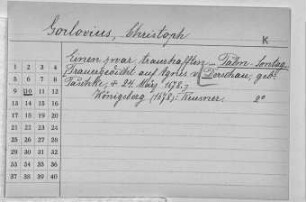 Gorlovius, Christoph
K
Einen zwar traurhafften ... Palm-Sontag
[Trauergedicht auf Agnes v. Derschau, geb.
Täuschke, + 24. März 1678.]
Königsberg (1678): Reusner 2°
1 2 3 4
5 6 7 8
9 10 11 12
13 14 15 16
17 18 19 20
21 22 23 24
25 26 27 28
29 30 31 32
33 34 35 36
37 38 39 40